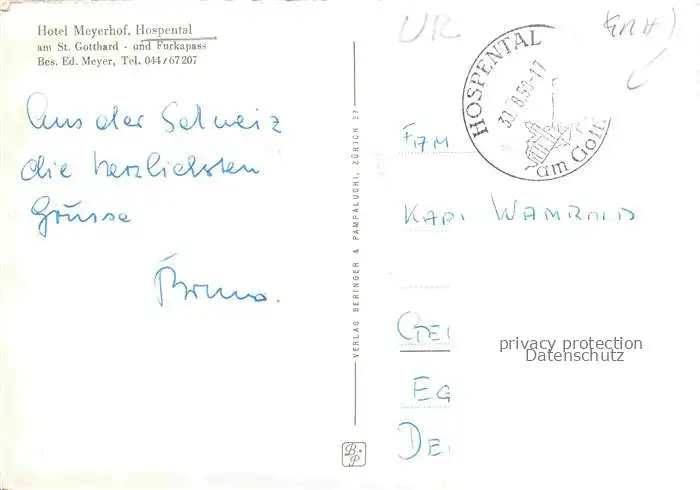 Hotel Meyerhof, Hospental
am St. Gotthard - und Furkapass
Bes. Ed. Meyer, Tel. 044/67207
Aus der Schweiz
die herzlichsten
Grüsse
Bruno.
VERLAG BERINGER & PAMPALUCHI, ZÜRICH 27
B.P
UR
HOSPENTAL
am Gott
FAM
KARL WAMBOLD
GEI
EG
DE
privacy protection
Datenschutz